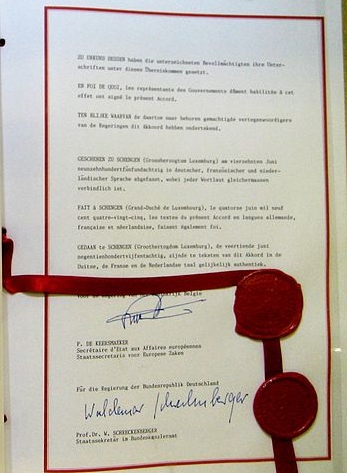 ZU URKUND DESSEN haben die unterzeichneten Bevollmächtigten ihre Unter-
schriften unter dieses Übereinkommen gesetzt.
EN FOI DE QUOI, les représentants des Gouvernements dûment habilités à cet
effet ont signé le présent Accord.
TEN BLIJKE WAARVAN de daartoe naar behoren gemachtigde vertegenwoordigers
van de Regeringen dit Akkoord hebben ondertekend.
GESCHEHEN ZU SCHENGEN (Grossherzogtum Luxemburg) am vierzehnten Juni
neunzehnhundertfünfundachtzig in deutscher, französischer und nieder-
ländischer Sprache abgefasst, wobei jeder Wortlaut gleichermassen
verbindlich ist.
FAIT à SCHENGEN (Grand-Duché de Luxembourg), le quatorze juin mil neuf
cent quatre-vingt-cinq, les textes du présent Accord en langues allemande,
française et néerlandaise, faisant également foi.
GEDAAN te SCHENGEN (Groothertogdom Luxemburg), de veertiende juni
negentienhonderdvijfentachtig, zijnde te teksten van dit Akkoord in de
Duitse, de Franse en de Nederlandse taal gelijkelijk authentiek.
België
P. DE KEERSMAEKER
Secrétaire d'Etat aux Affaires européennes
Staatssecretaris voor Europese Zaken
Für die Regierung der Bundesrepublik Deutschland
Waldemar Schreckenberger
Prof.Dr. W. SCHRECKENBERGER
Staatssekretär im Bundeskanzleramt